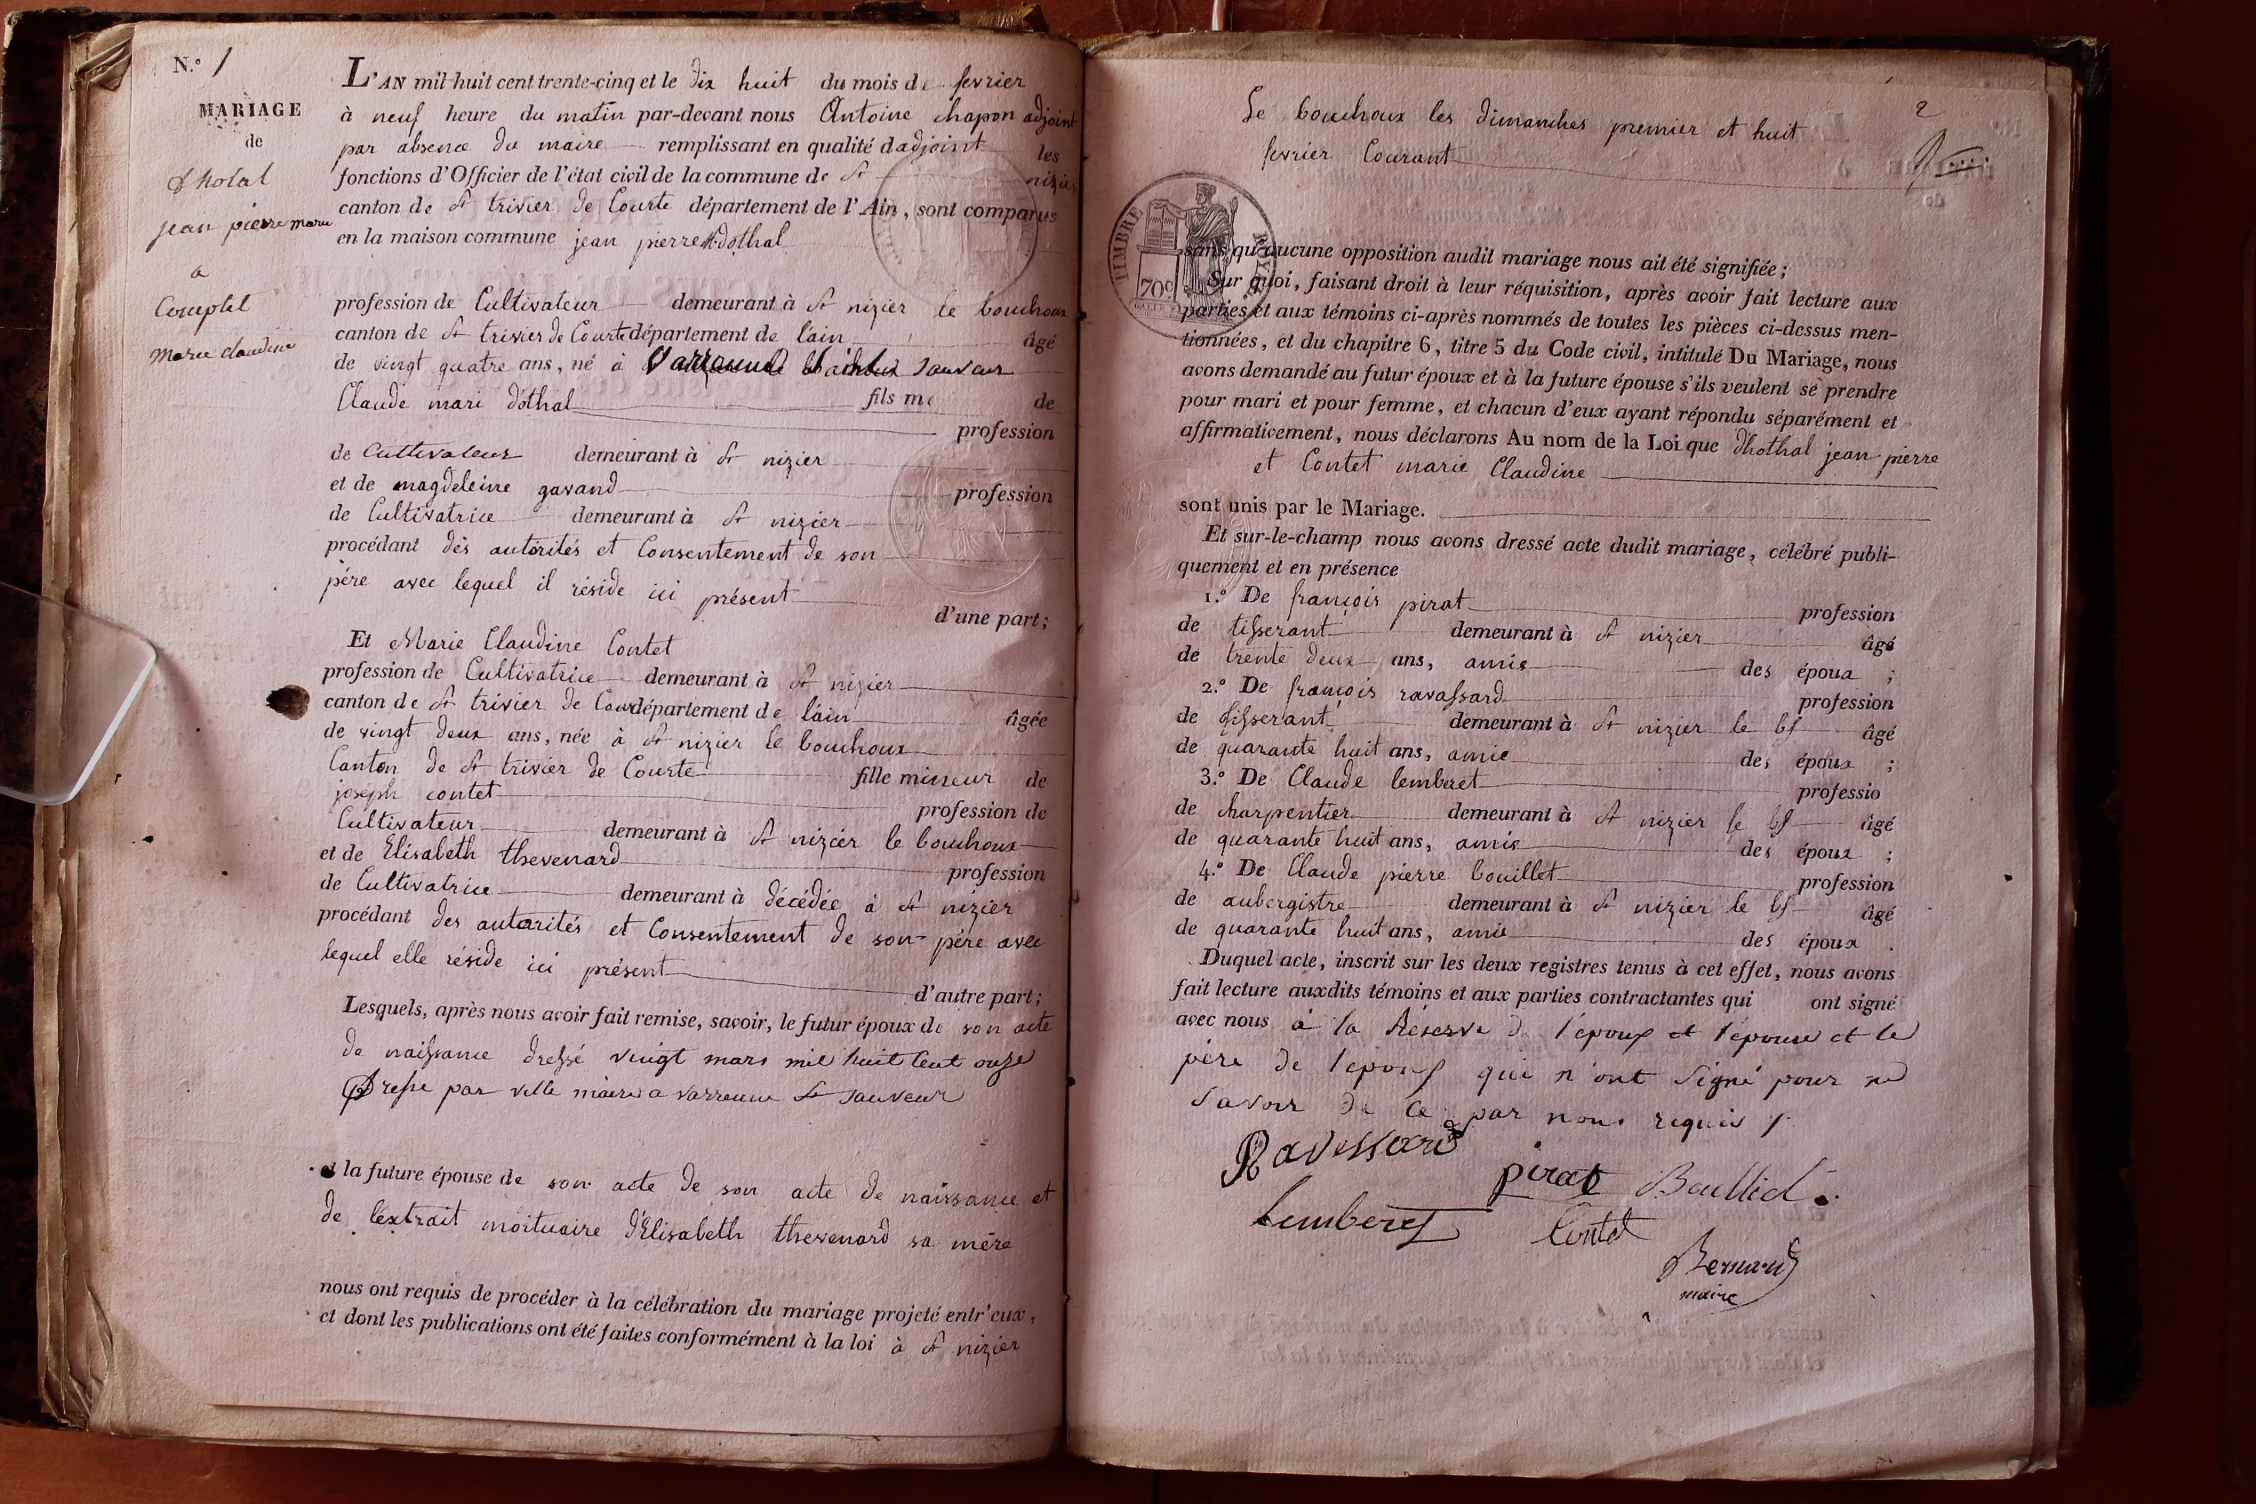 N.º 1
MARIAGE
de
dhotal
jean pierre marie
a
Comptet
marie claudine
L'AN mil-huit cent trente-cinq et le dix huit du mois de fevrier
à neuf heure du matin par-devant nous Antoine chapon adjoint
par absence du maire remplissant en qualité dadjoint les
fonctions d'Officier de l'état civil de la commune de St nizier
canton de St trivier de Courte département de l'Ain, sont comparus
en la maison commune jean pierre M. dothal
profession de Cultivateur demeurant à St nizier le bouchoux
canton de St trivier de Courte département de lain âgé
de vingt quatre ans, né à Varrenne St sauveur
Claude mari dothal fils de
profession
de Cultivateur demeurant à St nizier
et de magdeleine gavand profession
de Cultivatrice demeurant à St nizier
procédant dès autorités et Consentement de son
père avec lequel il réside ici présent
d'une part;
Et Marie Claudine Contet
profession de Cultivatrice demeurant à St nizier
canton de St trivier de Cour département de lain âgée
de vingt deux ans, née à St nizier le bouchoux
Canton de St trivier de Courte fille mineur de
joseph contet profession de
Cultivateur demeurant à St nizier le bouchoux
et de Elisabeth thevenard profession
de Cultivatrice demeurant à décédée à St nizier
procédant des autorités et Consentement de son père avec
lequel elle réside ici présent
d'autre part;
Lesquels, après nous avoir fait remise, savoir, le futur époux de son acte
de naissance dressé vingt mars mil huit cent onze
Dresse par ville maire a varrenne St sauveur
et la future épouse de son acte de son acte de naissance et
de l'extrait mortuaire d'Elisabeth thevenard sa mère
nous ont requis de procéder à la célébration du mariage projeté entr'eux,
et dont les publications ont été faites conformément à la loi à St nizier
2
Le bouchoux les dimanches premier et huit
fevrier Courant
TIMBRE ROYAL
70c
sans qu'aucune opposition audit mariage nous ait été signifiée;
Sur quoi, faisant droit à leur réquisition, après avoir fait lecture aux
parties et aux témoins ci-après nommés de toutes les pièces ci-dessus men-
tionnées, et du chapitre 6, titre 5 du Code civil, intitulé Du Mariage, nous
avons demandé au futur époux et à la future épouse s'ils veulent se prendre
pour mari et pour femme, et chacun d'eux ayant répondu séparément et
affirmativement, nous déclarons Au nom de la Loi que dhothal jean pierre
et Contet marie Claudine
sont unis par le Mariage.
Et sur-le-champ nous avons dressé acte dudit mariage, célébré publi-
quement et en présence
1.º De françois pirat profession
de tisserant demeurant à St nizier âgé
de trente deux ans, amis des époux ;
2.º De françois ravassard profession
de tisserant demeurant à St nizier le bs âgé
de quarante huit ans, amie des époux ;
3.º De Claude lemberet professio
de charpentier demeurant à St nizier le bs âgé
de quarante huit ans, amis des époux ;
4.º De Claude pierre bouillet profession
de aubergistre demeurant à St nizier le bs âgé
de quarante huit ans, amie des époux .
Duquel acte, inscrit sur les deux registres tenus à cet effet, nous avons
fait lecture auxdits témoins et aux parties contractantes qui ont signé
avec nous à la Réserve de l'époux et l'épouse et le
père de l'époux qui n'ont signé pour ne
savoir de ce par nous requis
Ravessard
pirat Boulliet
Lemberet Contet
Bernard
maire